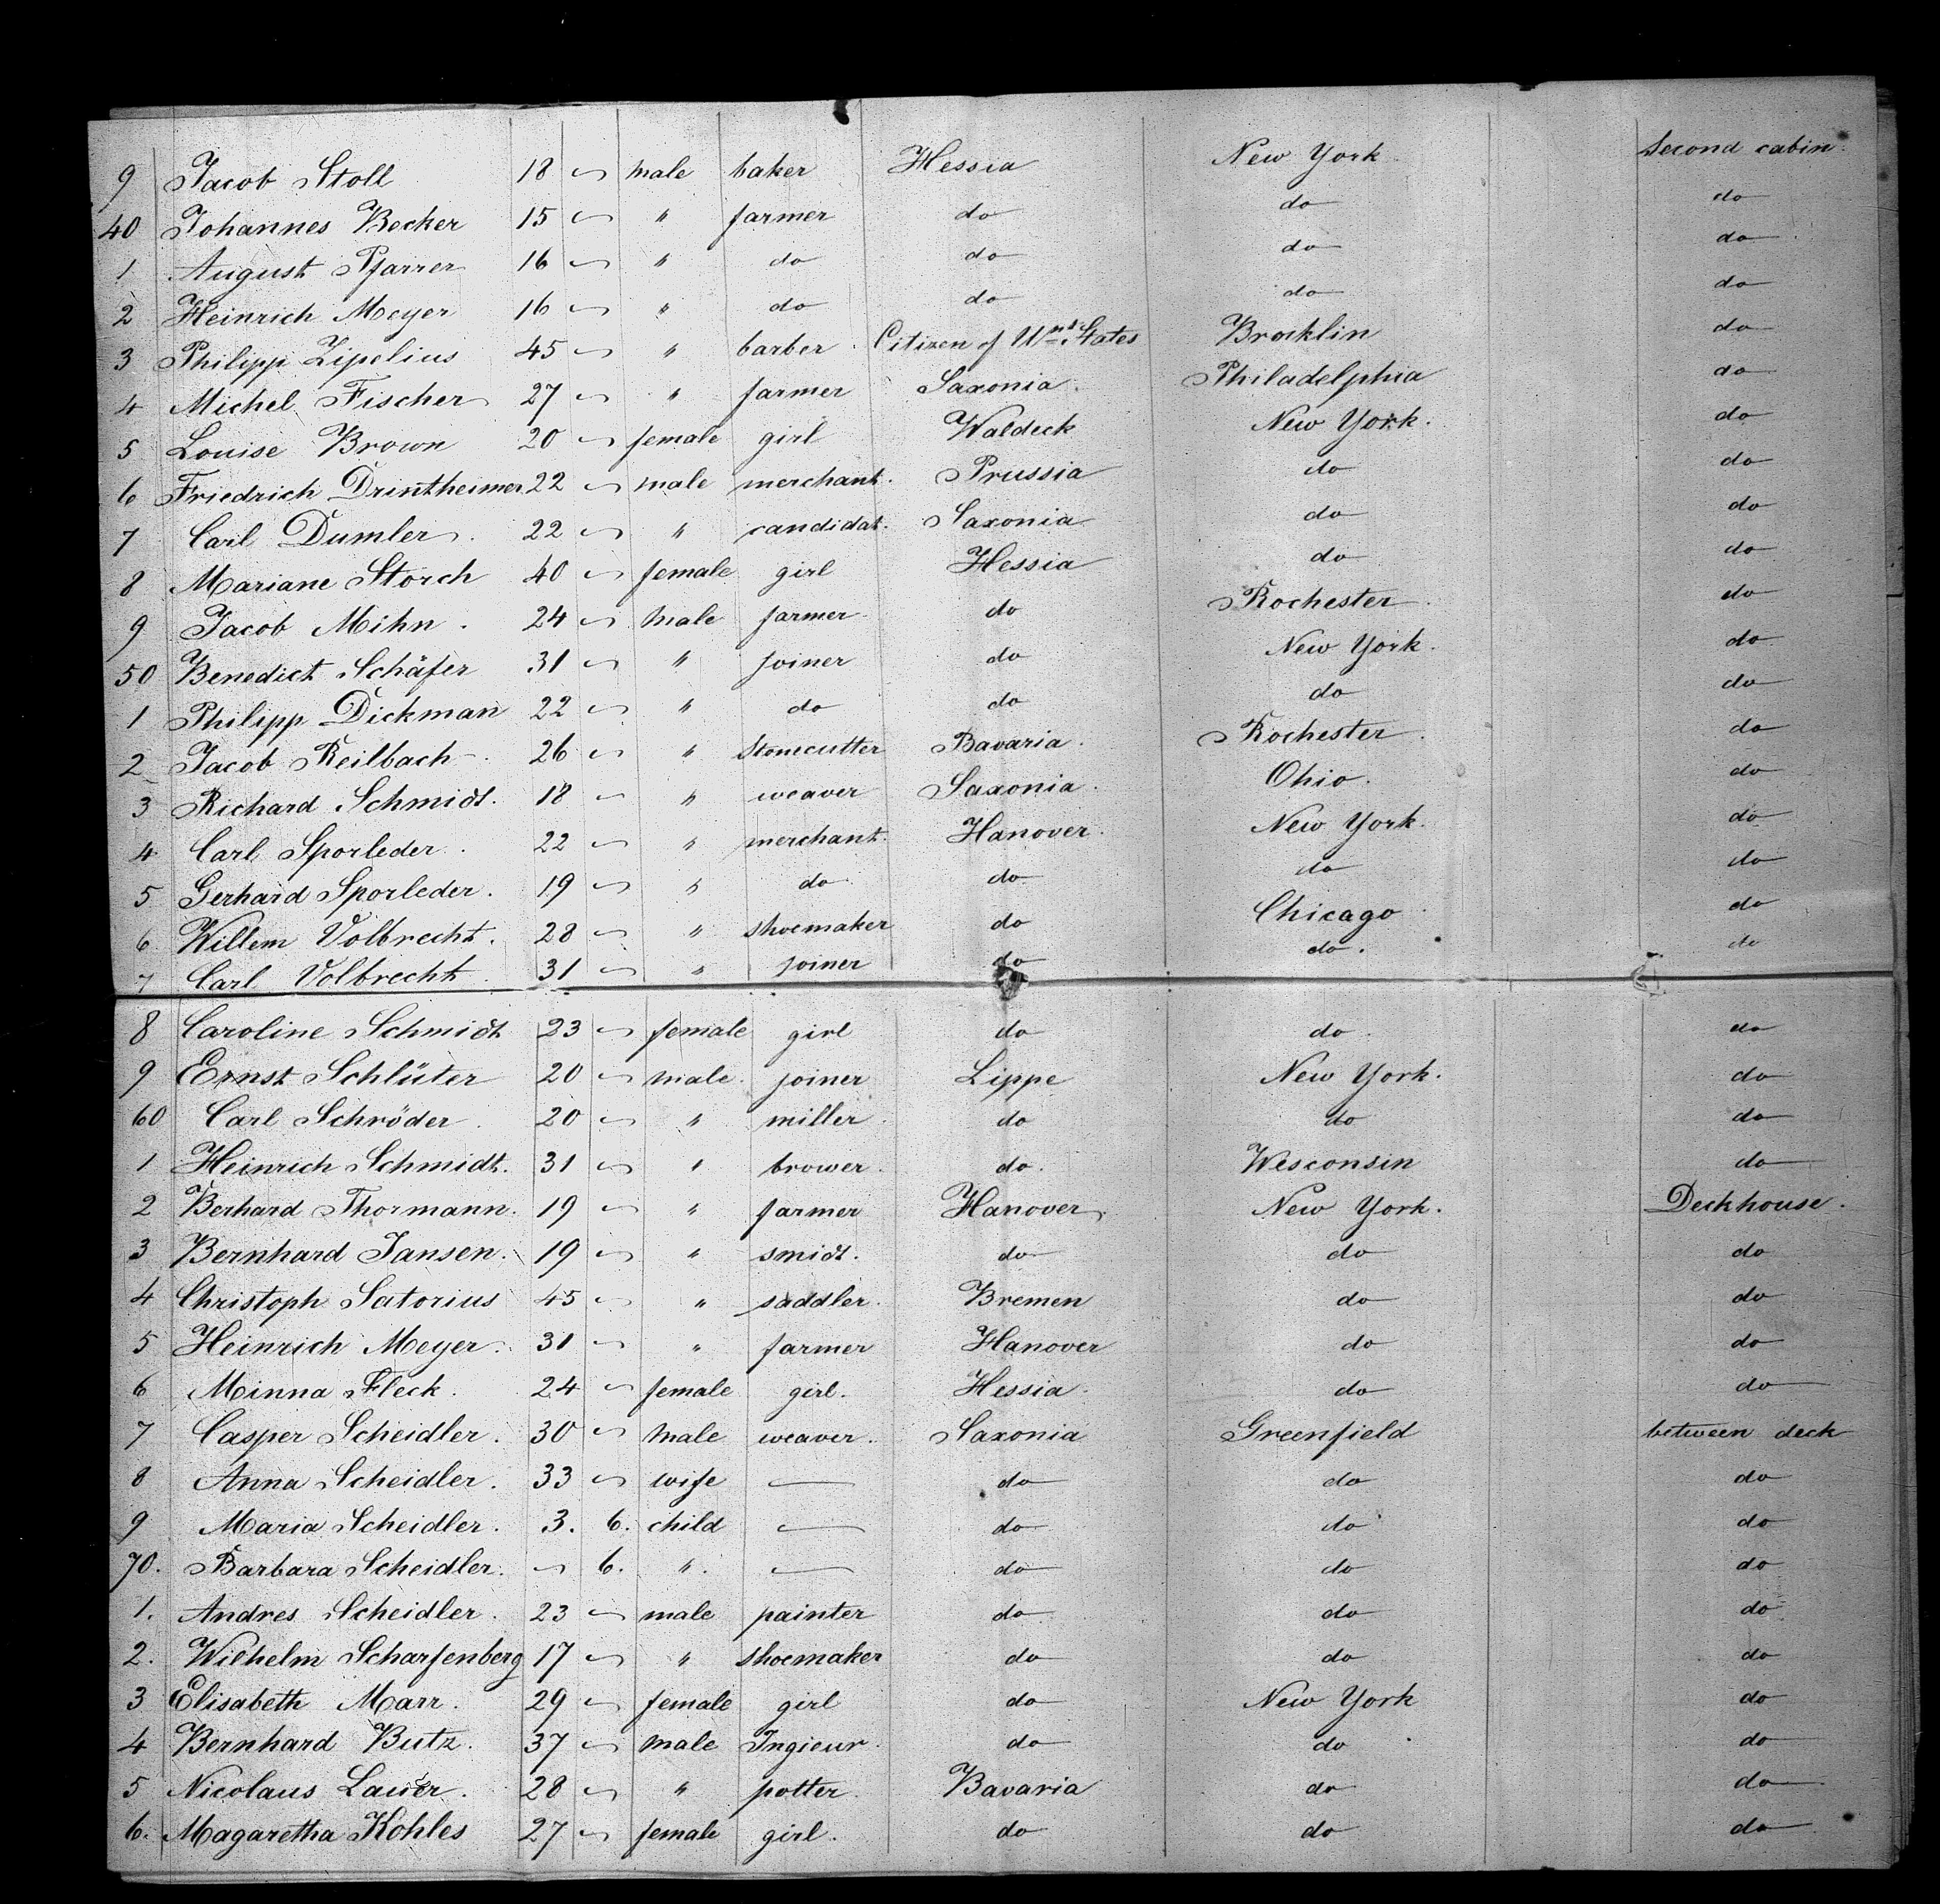 9 Jacob Stoll 18 ~ male baker Hessia New York Second cabin.
40 Johannes Becker 15 ~ " farmer do do do
1 August Pfarrer 16 ~ " do do do do
2 Heinrich Meyer 16 ~ " do do do do
3 Philipp Zipelius 45 ~ " barber Citizen of Un. States Brocklin do
4 Michel Fischer 27 ~ " farmer Saxonia. Philadelphia do
5 Louise Brown 20 ~ female girl Waldeck New York. do
6 Friedrich Drintheimer 22 ~ male merchant. Prussia do do
7 Carl Dumler. 22 ~ " candidat. Saxonia do do
8 Mariane Storch 40 ~ female girl Hessia do do
9 Jacob Mihn. 24 ~ male farmer do Rochester. do
50 Benedict Schäfer 31 ~ " joiner do New York. do
1 Philipp Dickman 22 ~ " do do do do
2 Jacob Reilbach 26 ~ " stonecutter Bavaria. Rochester. do
3 Richard Schmidt. 18 ~ " weaver Saxonia. Ohio. do
4 Carl Sporleder. 22 ~ " merchant. Hanover. New York. do
5 Gerhard Sporleder. 19 ~ " do do do do
6 Willem Volbrecht. 28 ~ " shoemaker do Chicago do
7 Carl Volbrecht 31 ~ " joiner do do. do
8 Caroline Schmidt 23 ~ female girl do do do
9 Ernst Schlüter 20 ~ male. joiner Lippe New York. do
60 Carl Schröder. 20 ~ " miller. do do do
1 Heinrich Schmidt. 31 ~ " brower. do. Wesconsin do
2 Berhard Thormann. 19 ~ " farmer Hanover. New York. Deckhouse.
3 Bernhard Jansen. 19 ~ " smidt. do do do
4 Christoph Satorius 45 ~ " saddler. Bremen do do
5 Heinrich Meyer. 31 ~ " farmer Hanover do do
6 Minna Fleck. 24 ~ female girl. Hessia. do do
7 Casper Scheidler. 30 ~ male weaver. Saxonia Greenfield between deck
8 Anna Scheidler. 33 ~ wife — do do do
9 Maria Scheidler. 3. 6. child — do do do
70. Barbara Scheidler. ~ 6. ". — do do do
1. Andres Scheidler. 23 ~ male painter do do do
2. Wilhelm Scharfenberg 17 ~ " shoemaker do do do
3 Elisabeth Marr. 29 ~ female girl do New York do
4 Bernhard Butz. 37 ~ male Ingieur. do do do
5 Nicolaus Lauer. 28 ~ " potter. Bavaria do do
6. Magaretha Kohles 27 ~ female girl. do do do